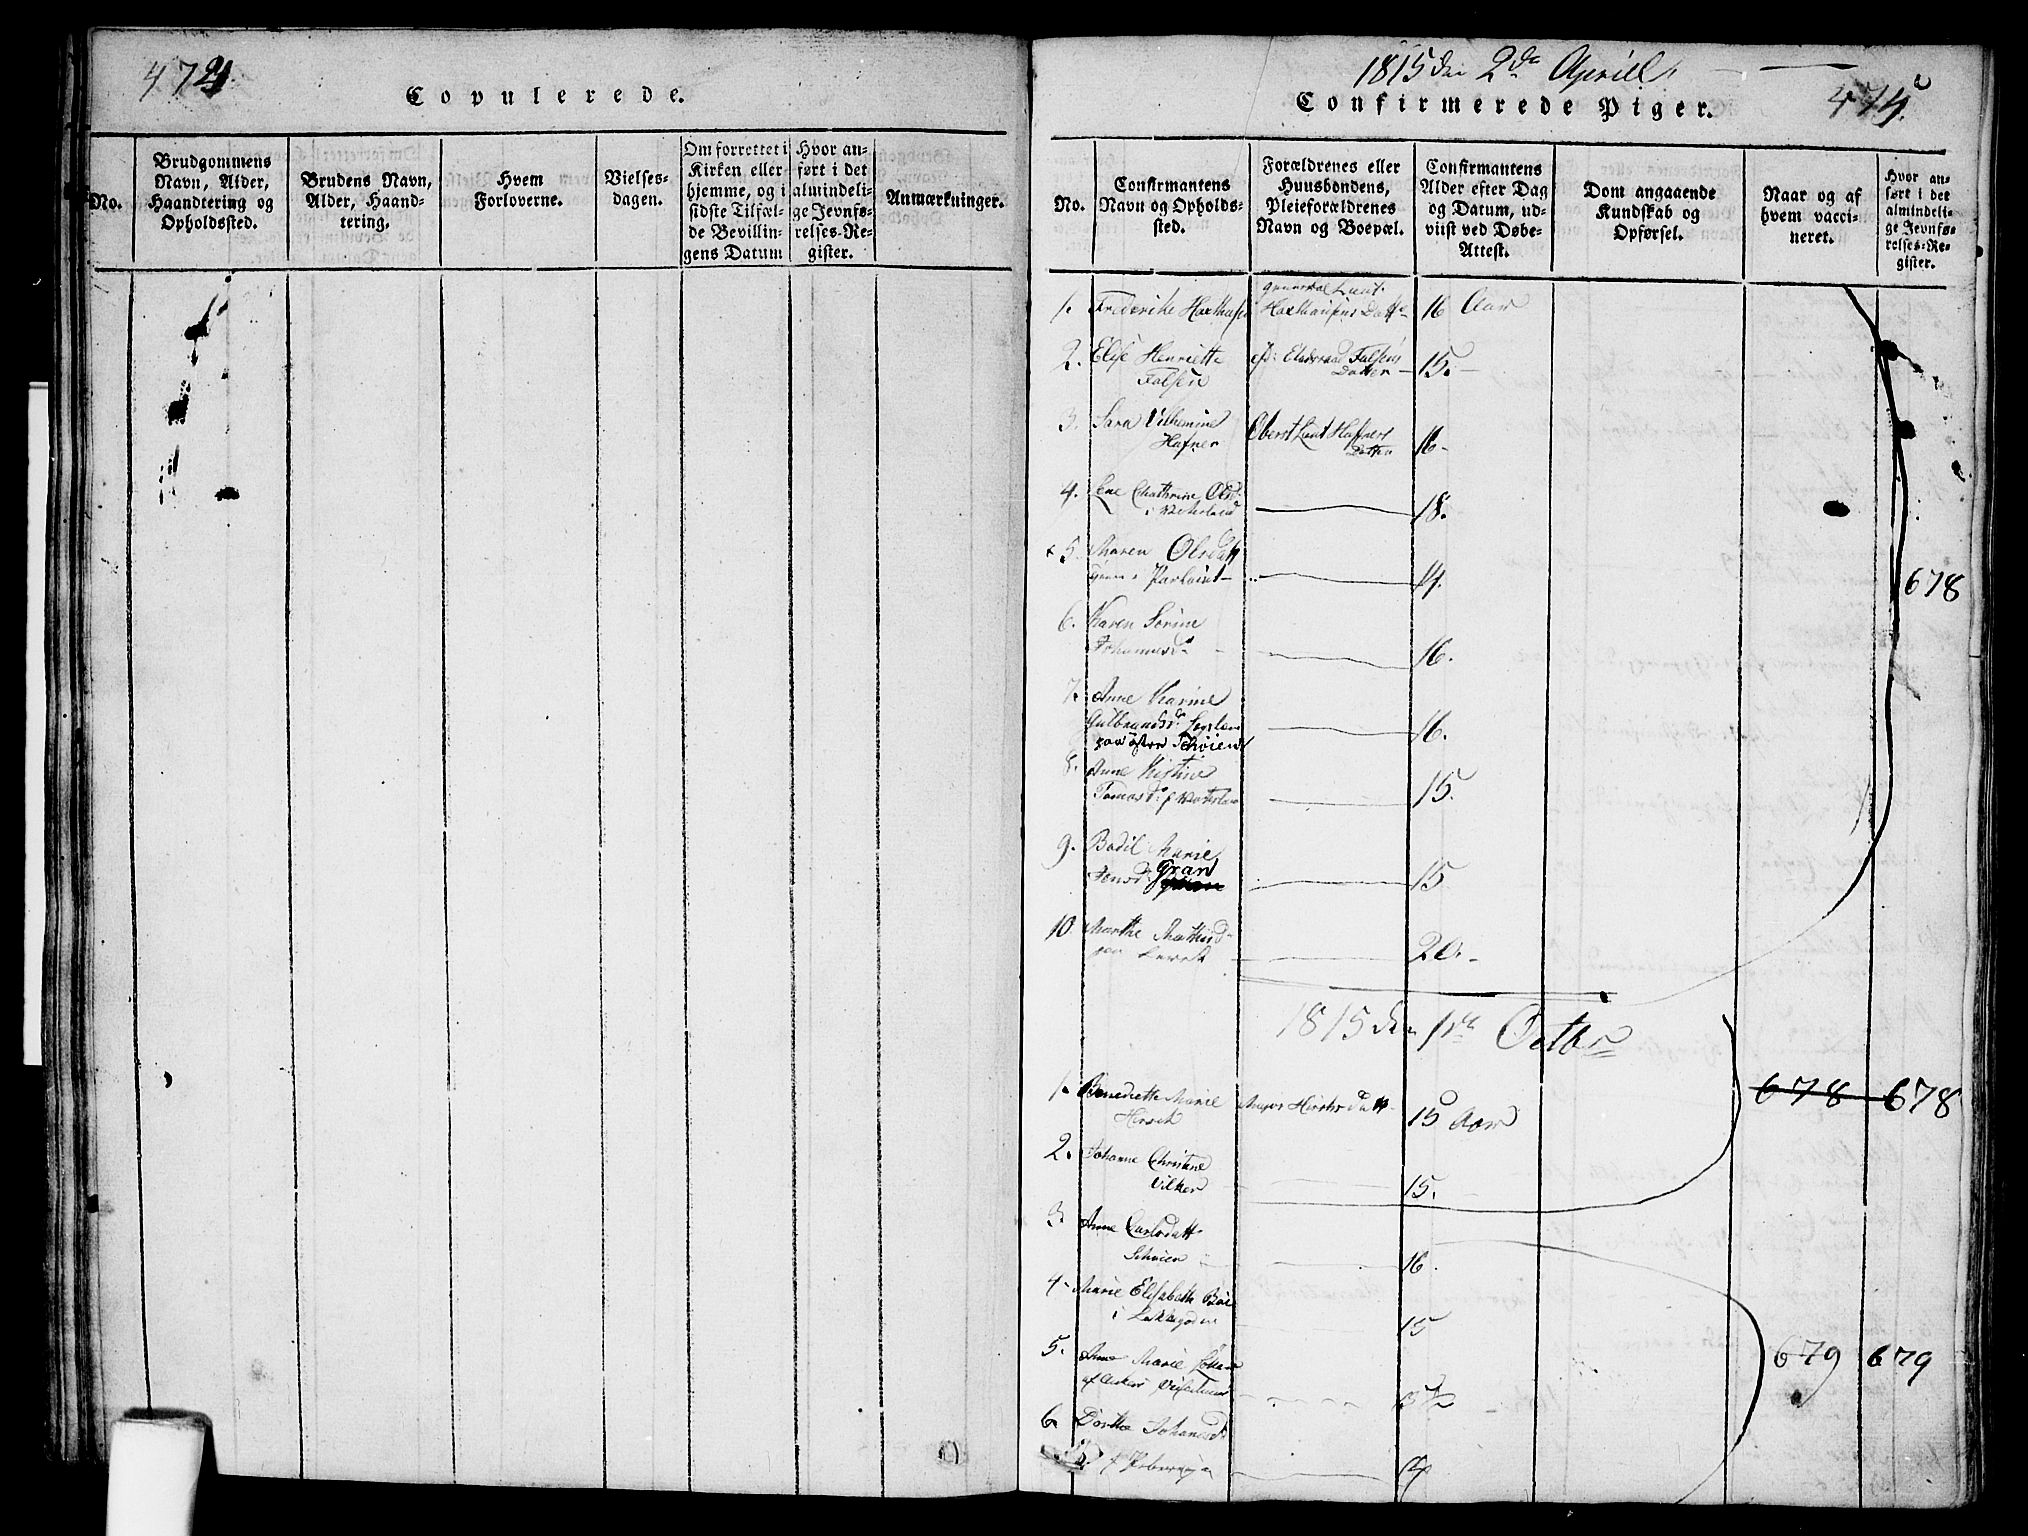 474.
Copulerede.
No.
Brudgommens
Navn, Alder,
Haandtering og
Opholdssted.
Brudens Navn,
Alder, Haand-
tering.
Hvem
Forloverne.
Vielses-
dagen.
Om forrettet i
Kirken eller
hjemme, og i
sidste Tilfæl-
de Bevillin-
gens Datum
Hvor an-
ført i det
almindeli-
ge Jevnfø-
relses-Re-
gister.
Anmærkninger.
1815 den 2de Aprill
Confirmerede Piger.
No.
Confirmantens
Navn og Opholds-
sted.
Forældrenes eller
Huusbondens,
Pleieforældrenes
Navn og Boepæl.
Confirmantens
Alder efter Dag
og Datum, ud-
viist ved Døbe-
Attest.
Dom angaaende
Kundskab og
Opførsel.
Naar og af
hvem vacci-
neret.
Hvor an-
ført i det
almindeli-
ge Jevnfø-
relses-Re-
gister.
1. Frederike Haxthausen
General Lieut.
Haxthausens Datter
16 Aar
2. Elise Henriette
Falsen
Etatsraad Falsens
Datter
15.
3. Sara Vilhemine
Hafner
Oberst Lieut Hafners
Datter
16
4. Lene Chathrine Olsd.
18.
5. Maren Olsdatt
14.
678
6. Karen Sorine
Johannesd.
16.
7. Anne Karine
Gulbrandsd.
Schöien
16.
8. Anne Kistine
Tomasd.
15.
9. Bodil Marie
Jensd. Gran
15
10. Marthe
20.
1815 den 1ste Octbr
1. Benediette Marie
Hirsch
Major Hirschs Datt
15 Aar
678 678
2. Johanne Christine
Vilker
15.
3. Anne Carlsdatt
Schöien
16.
4. Marie Elisabeth
i
15
5. Anne Marie
15 1/2
679 679
6. Dorthe Johannesd.